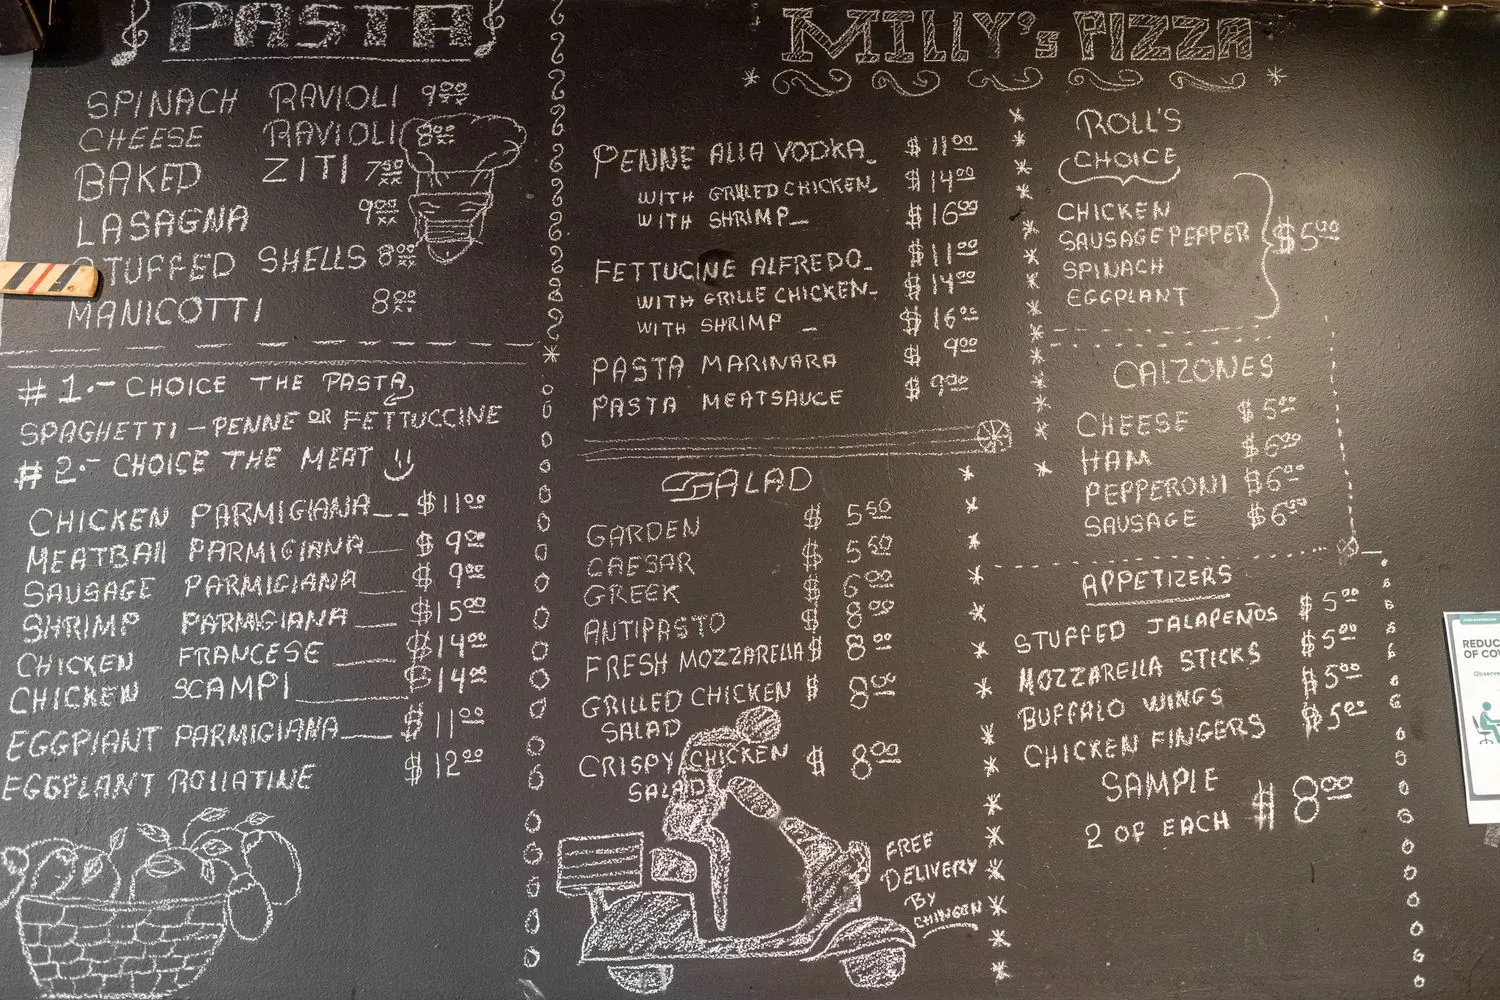 PASTA
SPINACH RAVIOLI 9.00
CHEESE RAVIOLI 8.00
BAKED ZITI 7.50
LASAGNA 9.00
STUFFED SHELLS 8.00
MANICOTTI 8.00
# 1.- CHOICE THE PASTA,
SPAGHETTI - PENNE OR FETTUCCINE
# 2.- CHOICE THE MEAT
CHICKEN PARMIGIANA $11.00
MEATBALL PARMIGIANA $9.00
SAUSAGE PARMIGIANA $9.00
SHRIMP PARMIGIANA $15.00
CHICKEN FRANCESE $14.00
CHICKEN SCAMPI $14.00
EGGPLANT PARMIGIANA $11.00
EGGPLANT ROLLATINE $12.00
MILLY'S PIZZA
PENNE ALLA VODKA $11.00
WITH GRILLED CHICKEN $14.00
WITH SHRIMP $16.00
FETTUCINE ALFREDO $11.00
WITH GRILLE CHICKEN $14.00
WITH SHRIMP $16.00
PASTA MARINARA $9.00
PASTA MEATSAUCE $9.00
SALAD
GARDEN $5.50
CAESAR $5.50
GREEK $6.00
ANTIPASTO $8.00
FRESH MOZZARELLA $8.00
GRILLED CHICKEN $8.00
SALAD
CRISPY CHICKEN $8.00
SALAD
FREE
DELIVERY
BY
CHINGON
ROLL'S
CHOICE
CHICKEN
SAUSAGE PEPPER $5.00
SPINACH
EGGPLANT
CALZONES
CHEESE $5.00
HAM $6.00
PEPPERONI $6.00
SAUSAGE $6.00
APPETIZERS
STUFFED JALAPEÑOS $5.00
MOZZARELLA STICKS $5.00
BUFFALO WINGS $5.00
CHICKEN FINGERS $5.00
SAMPLE
2 OF EACH $8.00
REDUC
OF CO
Observe